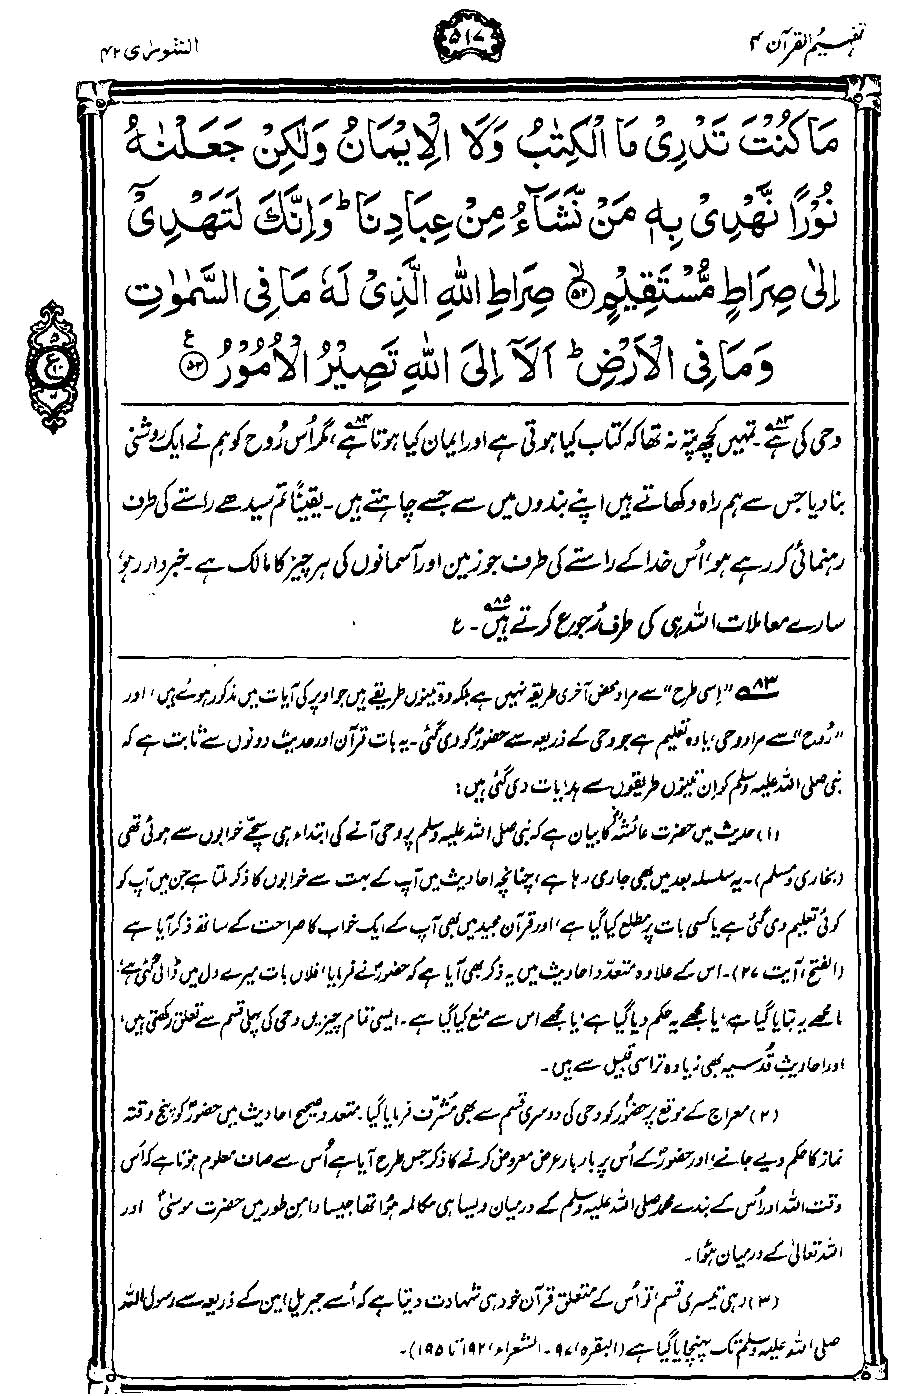 تفہیم القرآن ۴
۵۱۷
الشوریٰ ۴۲
مَا كُنْتَ تَدْرِىْ مَا الْكِتٰبُ وَلَا الْاِيْمَانُ وَلٰكِنْ جَعَلْنٰهُ
نُوْرًا نَّهْدِىْ بِهٖ مَنْ نَّشَآءُ مِنْ عِبَادِنَا ؕ وَاِنَّكَ لَتَهْدِىْٓ
اِلٰى صِرَاطٍ مُّسْتَقِيْمٍ ۙ﴿۵۲﴾ صِرَاطِ اللّٰهِ الَّذِىْ لَهٗ مَا فِى السَّمٰوٰتِ
وَمَا فِى الْاَرْضِ ؕ اَلَآ اِلَى اللّٰهِ تَصِيْرُ الْاُمُوْرُ ﴿۵۳﴾ ع
وحی کی ہے۸۳۔ تمہیں کچھ پتہ نہ تھا کہ کتاب کیا ہوتی ہے اور ایمان کیا ہوتا ہے۸۴، مگر اُس رُوح کو ہم نے ایک روشنی
بنا دیا جس سے ہم راہ دکھاتے ہیں اپنے بندوں میں سے جسے چاہتے ہیں۔ یقیناً تم سیدھے راستے کی طرف
رہنمائی کر رہے ہو، اُس خدا کے راستے کی طرف جو زمین اور آسمانوں کی ہر چیز کا مالک ہے۔ خبردار رہو،
سارے معاملات اللہ ہی کی طرف رُجوع کرتے ہیں۸۵۔ ع
۸۳ ”اِسی طرح“ سے مراد محض آخری طریقہ نہیں ہے بلکہ وہ تینوں طریقے ہیں جو اوپر کی آیات میں مذکور ہوئے ہیں، اور
”رُوح“ سے مراد وحی، یا وہ تعلیم ہے جو وحی کے ذریعہ سے حضورؐ کو دی گئی۔ یہ بات قرآن اور حدیث دونوں سے ثابت ہے کہ
نبی صلی اللہ علیہ وسلم کو اِن تینوں طریقوں سے ہدایات دی گئی ہیں:
(۱) حدیث میں حضرت عائشہؓ کا بیان ہے کہ نبی صلی اللہ علیہ وسلم پر وحی آنے کی ابتداء ہی سچے خوابوں سے ہوئی تھی
(بخاری و مسلم)۔ یہ سلسلہ بعد میں بھی جاری رہا ہے، چنانچہ احادیث میں آپ کے بہت سے خوابوں کا ذکر ملتا ہے جن میں آپ کو
کوئی تعلیم دی گئی ہے یا کسی بات پر مطلع کیا گیا ہے، اور قرآن مجید میں بھی آپ کے ایک خواب کا صراحت کے ساتھ ذکر آیا ہے
(الفتح، آیت ۲۷)۔ اس کے علاوہ متعدد احادیث میں یہ ذکر بھی آیا ہے کہ حضورؐ نے فرمایا، فلاں بات میرے دل میں ڈالی گئی ہے،
یا مجھے یہ بتایا گیا ہے، یا مجھے یہ حکم دیا گیا ہے، یا مجھے اس سے منع کیا گیا ہے۔ ایسی تمام چیزیں وحی کی پہلی قسم سے تعلق رکھتی ہیں،
اور احادیثِ قُدسیہ بھی زیادہ تر اسی قبیل سے ہیں۔
(۲) معراج کے موقع پر حضورؐ کو وحی کی دوسری قسم سے بھی مشرف فرمایا گیا۔ متعدد صحیح احادیث میں حضورؐ کو پنج وقتہ
نماز کا حکم دیے جانے، اور حضورؐ کے اُس پر بار بار عرض معروض کرنے کا ذکر جس طرح آیا ہے اُس سے صاف معلوم ہوتا ہے کہ اُس
وقت اللہ اور اُس کے بندے محمد صلی اللہ علیہ وسلم کے درمیان ویسا ہی مکالمہ ہؤا تھا جیسا دامنِ طور میں حضرت موسیٰؑ اور
اللہ تعالیٰ کے درمیان ہؤا۔
(۳) رہی تیسری قسم، تو اُس کے متعلق قرآن خود ہی شہادت دیتا ہے کہ اُسے جبریلِ امین کے ذریعہ سے رسول اللہ
صلی اللہ علیہ وسلم تک پہنچایا گیا ہے (البقرہ، ۹۷۔ الشعراء، ۱۹۲ تا ۱۹۵)۔